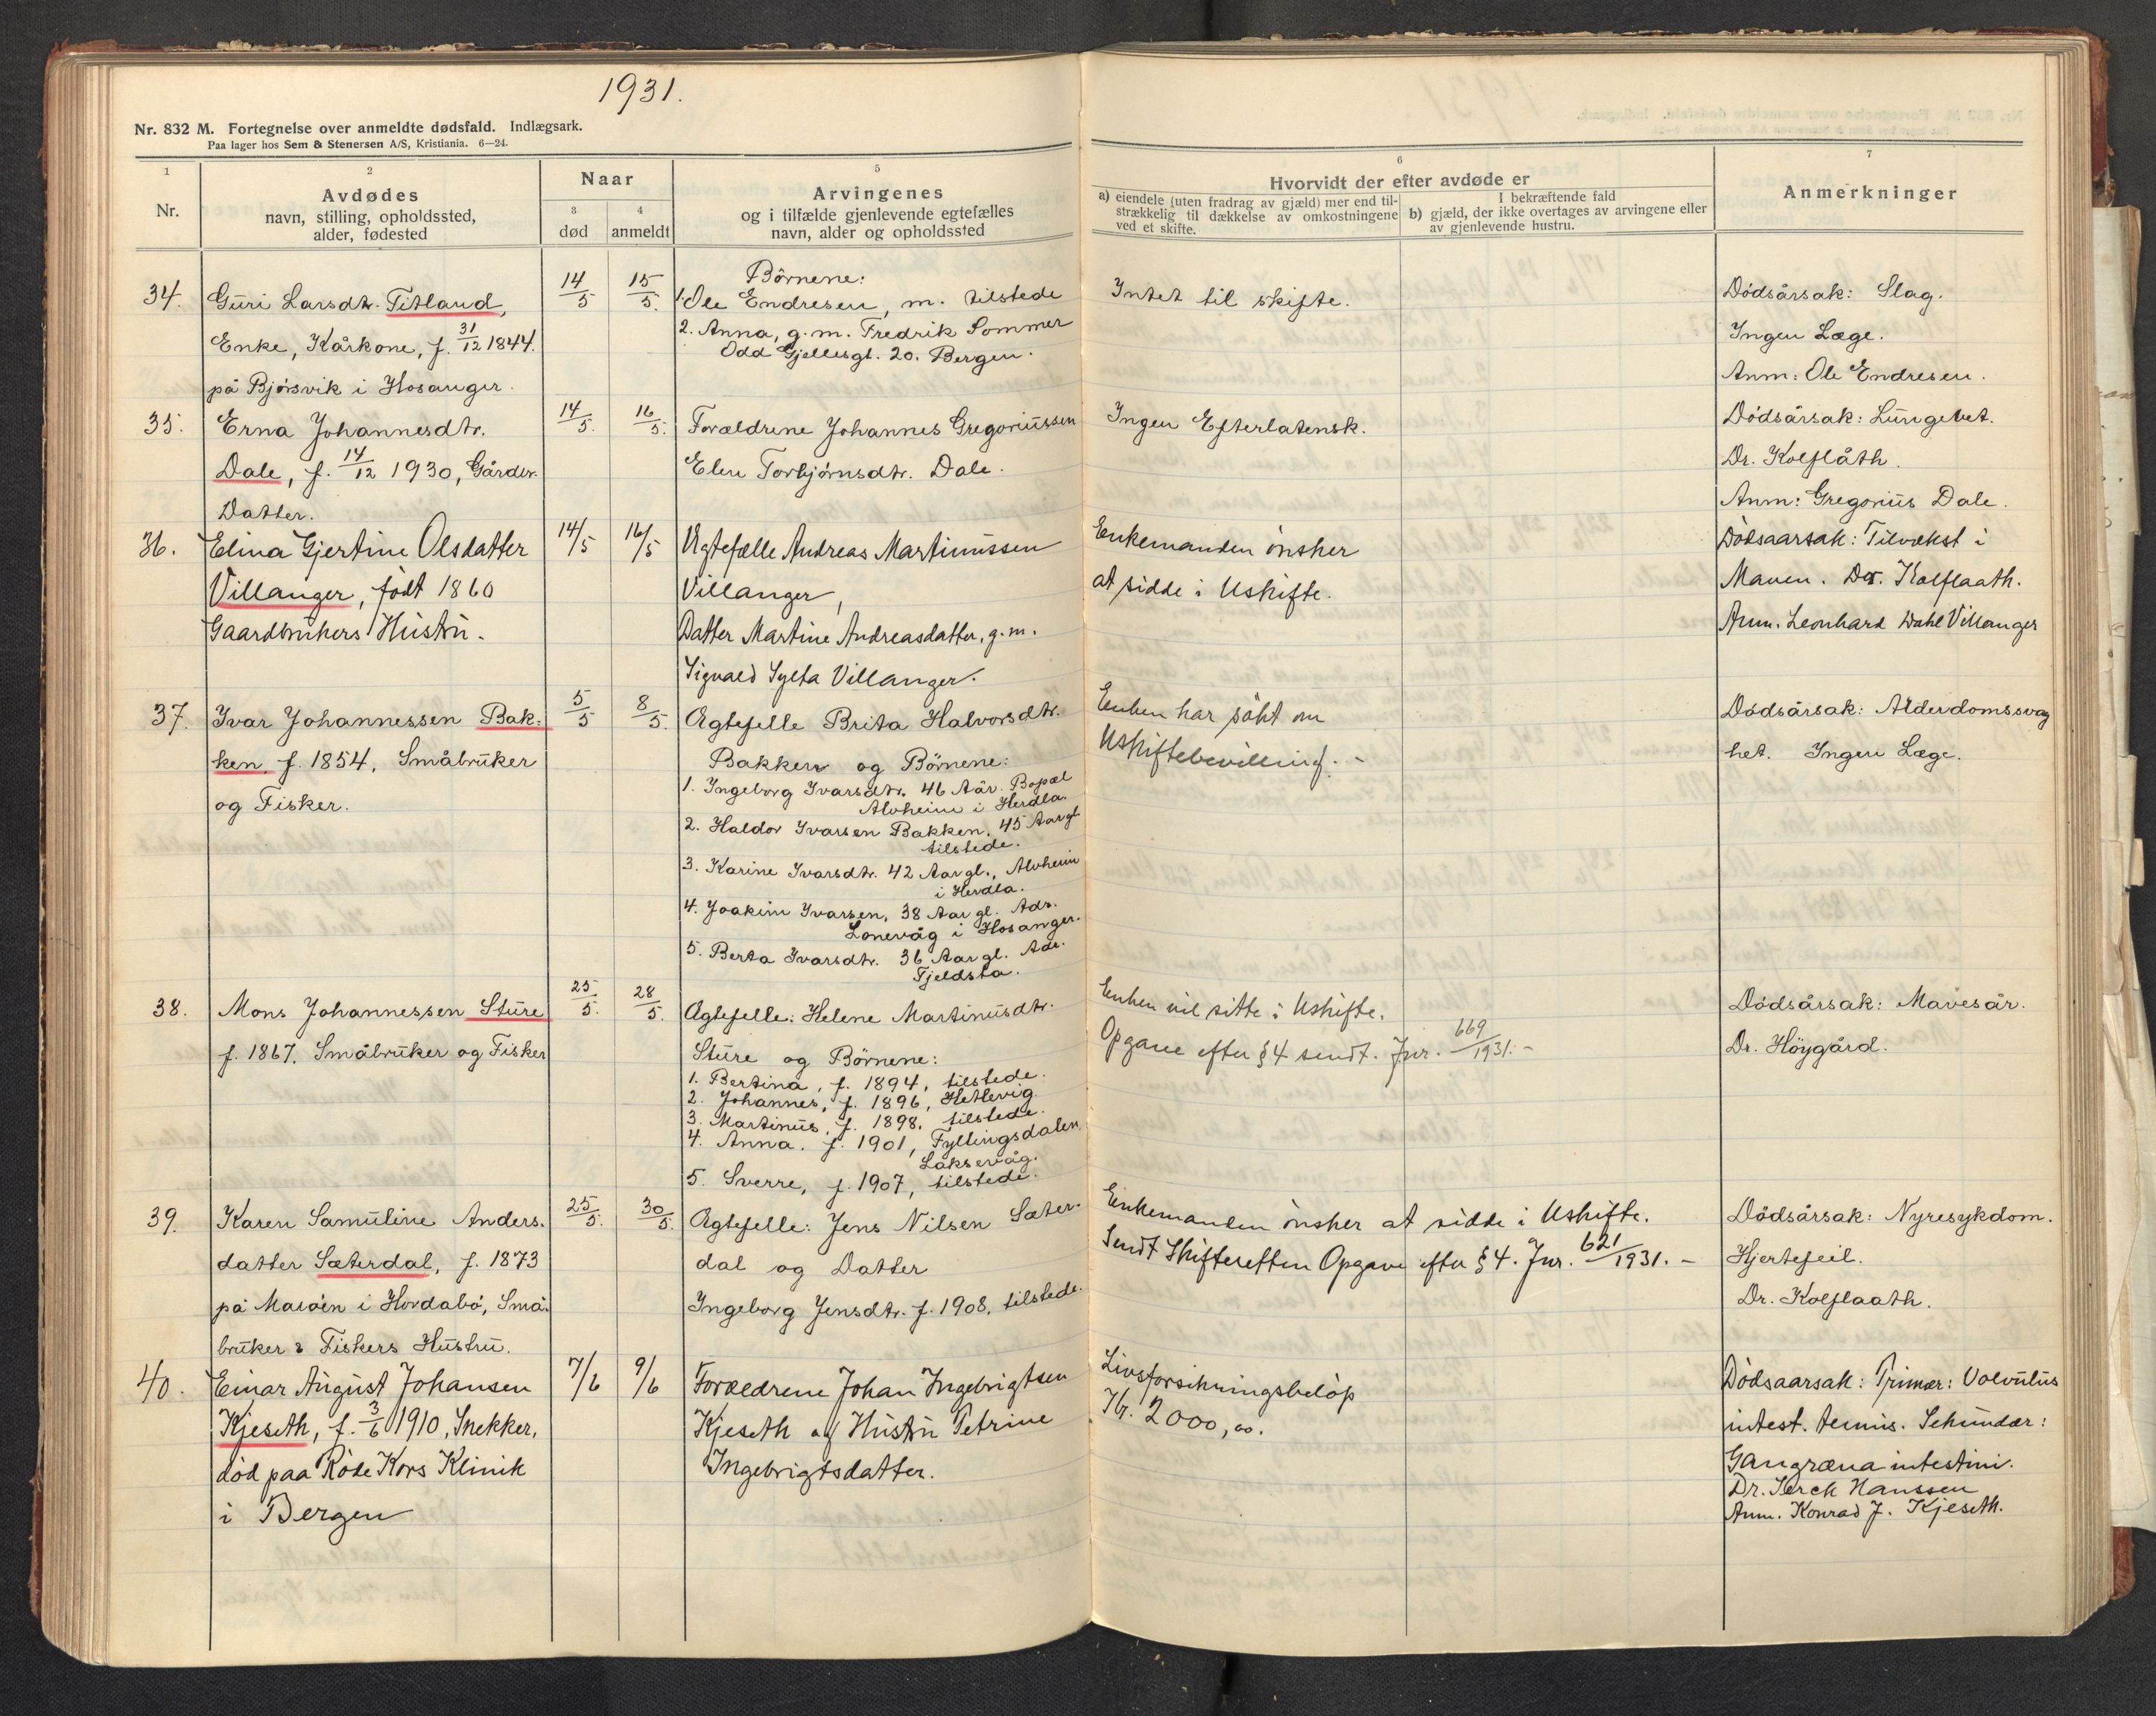 1931.
Nr. 832 M. Fortegnelse over anmeldte dødsfald. Indlægsark.
Paa lager hos Sem & Stenersen A/S, Kristiania. 6—24.
1
Nr.
2
Avdødes
navn, stilling, opholdssted,
alder, fødested
Naar
3
død
4
anmeldt
5
Arvingenes
og i tilfælde gjenlevende egtefælles
navn, alder og opholdssted
6
Hvorvidt der efter avdøde er
a) eiendele (uten fradrag av gjæld) mer end til-
strækkelig til dækkelse av omkostningene
ved et skifte.
I bekræftende fald
b) gjæld, der ikke overtages av arvingene eller
av gjenlevende hustru.
7
Anmerkninger
34.
Guri Larsdtr. Titland,
Enke, Kårkone, f. 31/12 1844.
på Bjørsvik i Hosanger.
14/5
15/5.
Börnene:
1. Ole Endresen, m. tilstede
2. Anna, g.m. Fredrik Sommer
Odd Gjellesgt. 20. Bergen.
Intet til skifte.
Dödsårsak: Slag.
Ingen Læge.
Anm: Ole Endresen.
35.
Erna Johannesdtr.
Dale, f. 14/12 1930, Gårdbr.
Datter.
14/5.
16/5.
Forældrene Johannes Gregoriussen
Elen Torbjörnsdtr. Dale.
Ingen Efterlatensk.
Dödsårsak: Lungebet.
Dr. Kolflåth.
Anm: Gregorius Dale.
36.
Elina Gjertine Olsdatter
Villanger, født 1860
Gaardbrukers Hustru.
14/5
16/5
Ægtefælle Andreas Martinussen
Villanger,
Datter Martine Andreasdatter, g.m.
Sigvald Sylta Villanger.
Enkemanden önsker
at sidde i Uskifte.
Dödsaarsak: Tilvekst i
Maven. Dr. Kolflaath.
Anm. Leonhard Dahl Villanger
37.
Ivar Johannessen Bak-
ken, f. 1854, Småbruker
og Fisker.
5/5
8/5.
Ægtefelle Brita Halvorsdtr.
Bakken og Börnene:
1. Ingeborg Ivarsdtr. 46 Aar. Bopæl
Alvheim i Herdla.
2. Haldor Ivarsen Bakken. 45 Aar gl.
tilstede.
3. Karine Ivarsdtr. 42 Aar gl., Alvheim
i Herdla.
4. Joakim Ivarsen, 38 Aar gl. Adr.
Lonevåg i Hosanger.
5. Berta Ivarsdtr. 36 Aar gl. Adr.
Fjeldsta.
Enken har søkt om
Uskiftebevilling. -
Dödsårsak: Alderdomssvag
het. Ingen Læge.
38.
Mons Johannessen Sture
f. 1867. Småbruker og Fisker
25/5.
28/5.
Ægtefelle: Helene Martinusdtr.
Sture og Börnene:
1. Bertina, f. 1894, tilstede.
2. Johannes, f. 1896, Hetlevig.
3. Martinus, f. 1898, tilstede.
4. Anna. f. 1901, Fyllingsdalen,
Laksevåg.
5. Sverre, f. 1907, tilstede.
Enken vil sitte i Uskifte.
Opgave efter § 4 sendt. Jnr. 669/1931. -
Dödsårsak: Mavesår.
Dr. Höygård.
39.
Karen Samuline Anders.
datter Sæterdal, f. 1873
på Marøen i Hordabö, Små-
bruker & Fiskers Hustru.
25/5.
30/5.
Ægtefelle: Jens Nilsen Sæter-
dal og Datter
Ingeborg Jensdtr. f. 1908, tilstede.
Enkemanden önsker at sidde i Uskifte.
Sendt Skifteretten Opgave efter § 4. Jnr. 621/1931. -
Dödsårsak: Nyresykdom.
Hjertefeil.
Dr. Kolflaath.
40.
Einar August Johansen
Kjeseth, f. 3/6 1910, Snekker,
död paa Röde Kors Klinik
i Bergen
7/6
9/6
Forældrene Johan Ingebrigtsen
Kjeseth og Hustru Petrine
Ingebrigtsdatter.
Livsforsikringsbeløp
Kr. 2000,00.
Dödsaarsak: Primær: Volvulus
intest. tenuis. Sekundær:
Gangræna intestini.
Dr. Hanssen
Anm. Konrad J. Kjeseth.